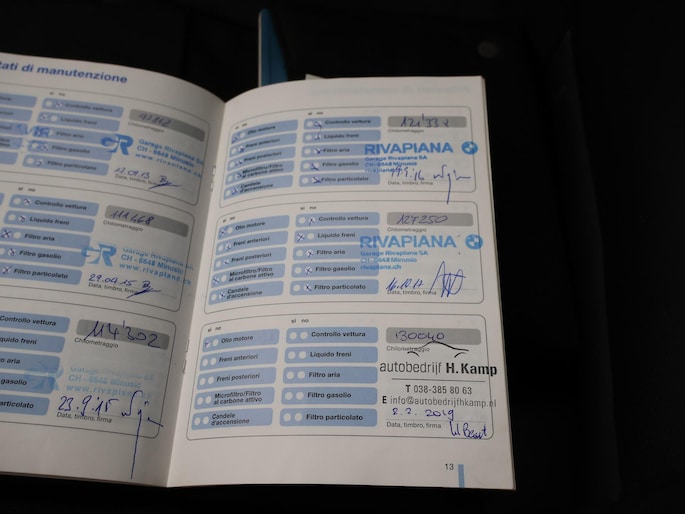 ati di manutenzione
sì no
Controllo vettura
Liquido freni
Filtro aria
Filtro gasolio
Filtro particolato
Chilometraggio
GR
Garage Rivapiana SA
CH - 6648 Minusio
www.rivapiana.ch
Data, timbro, firma
sì no
Controllo vettura
Liquido freni
Filtro aria
Filtro gasolio
Filtro particolato
111'468
Chilometraggio
GR
Garage Rivapiana SA
CH - 6648 Minusio
www.rivapiana.ch
29.04.15
Data, timbro, firma
Controllo vettura
Liquido freni
o aria
gasolio
particolato
114'302
Chilometraggio
CH - 6648 Minusio
www.rivapiana.ch
23.9.15
Data, timbro, firma
sì no
Olio motore
Freni anteriori
Freni posteriori
Microfiltro/Filtro
al carbone attivo
Candele
d'accensione
sì no
Controllo vettura
Liquido freni
Filtro aria
Filtro gasolio
Filtro particolato
Chilometraggio
RIVAPIANA
Garage Rivapiana SA
CH - 6648 Minusio
rivapiana.ch
Data, timbro, firma
sì no
Olio motore
Freni anteriori
Freni posteriori
Microfiltro/Filtro
al carbone attivo
Candele
d'accensione
sì no
Controllo vettura
Liquido freni
Filtro aria
Filtro gasolio
Filtro particolato
127250
Chilometraggio
RIVAPIANA
Garage Rivapiana SA
CH - 6648 Minusio
rivapiana.ch
16.10.17
Data, timbro, firma
sì no
Olio motore
Freni anteriori
Freni posteriori
Microfiltro/Filtro
al carbone attivo
Candele
d'accensione
sì no
Controllo vettura
Liquido freni
Filtro aria
Filtro gasolio
Filtro particolato
130040
Chilometraggio
autobedrijf H. Kamp
T 038-385 80 63
E info@autobedrijfhkamp.nl
2.2.2019
Data, timbro, firma
13